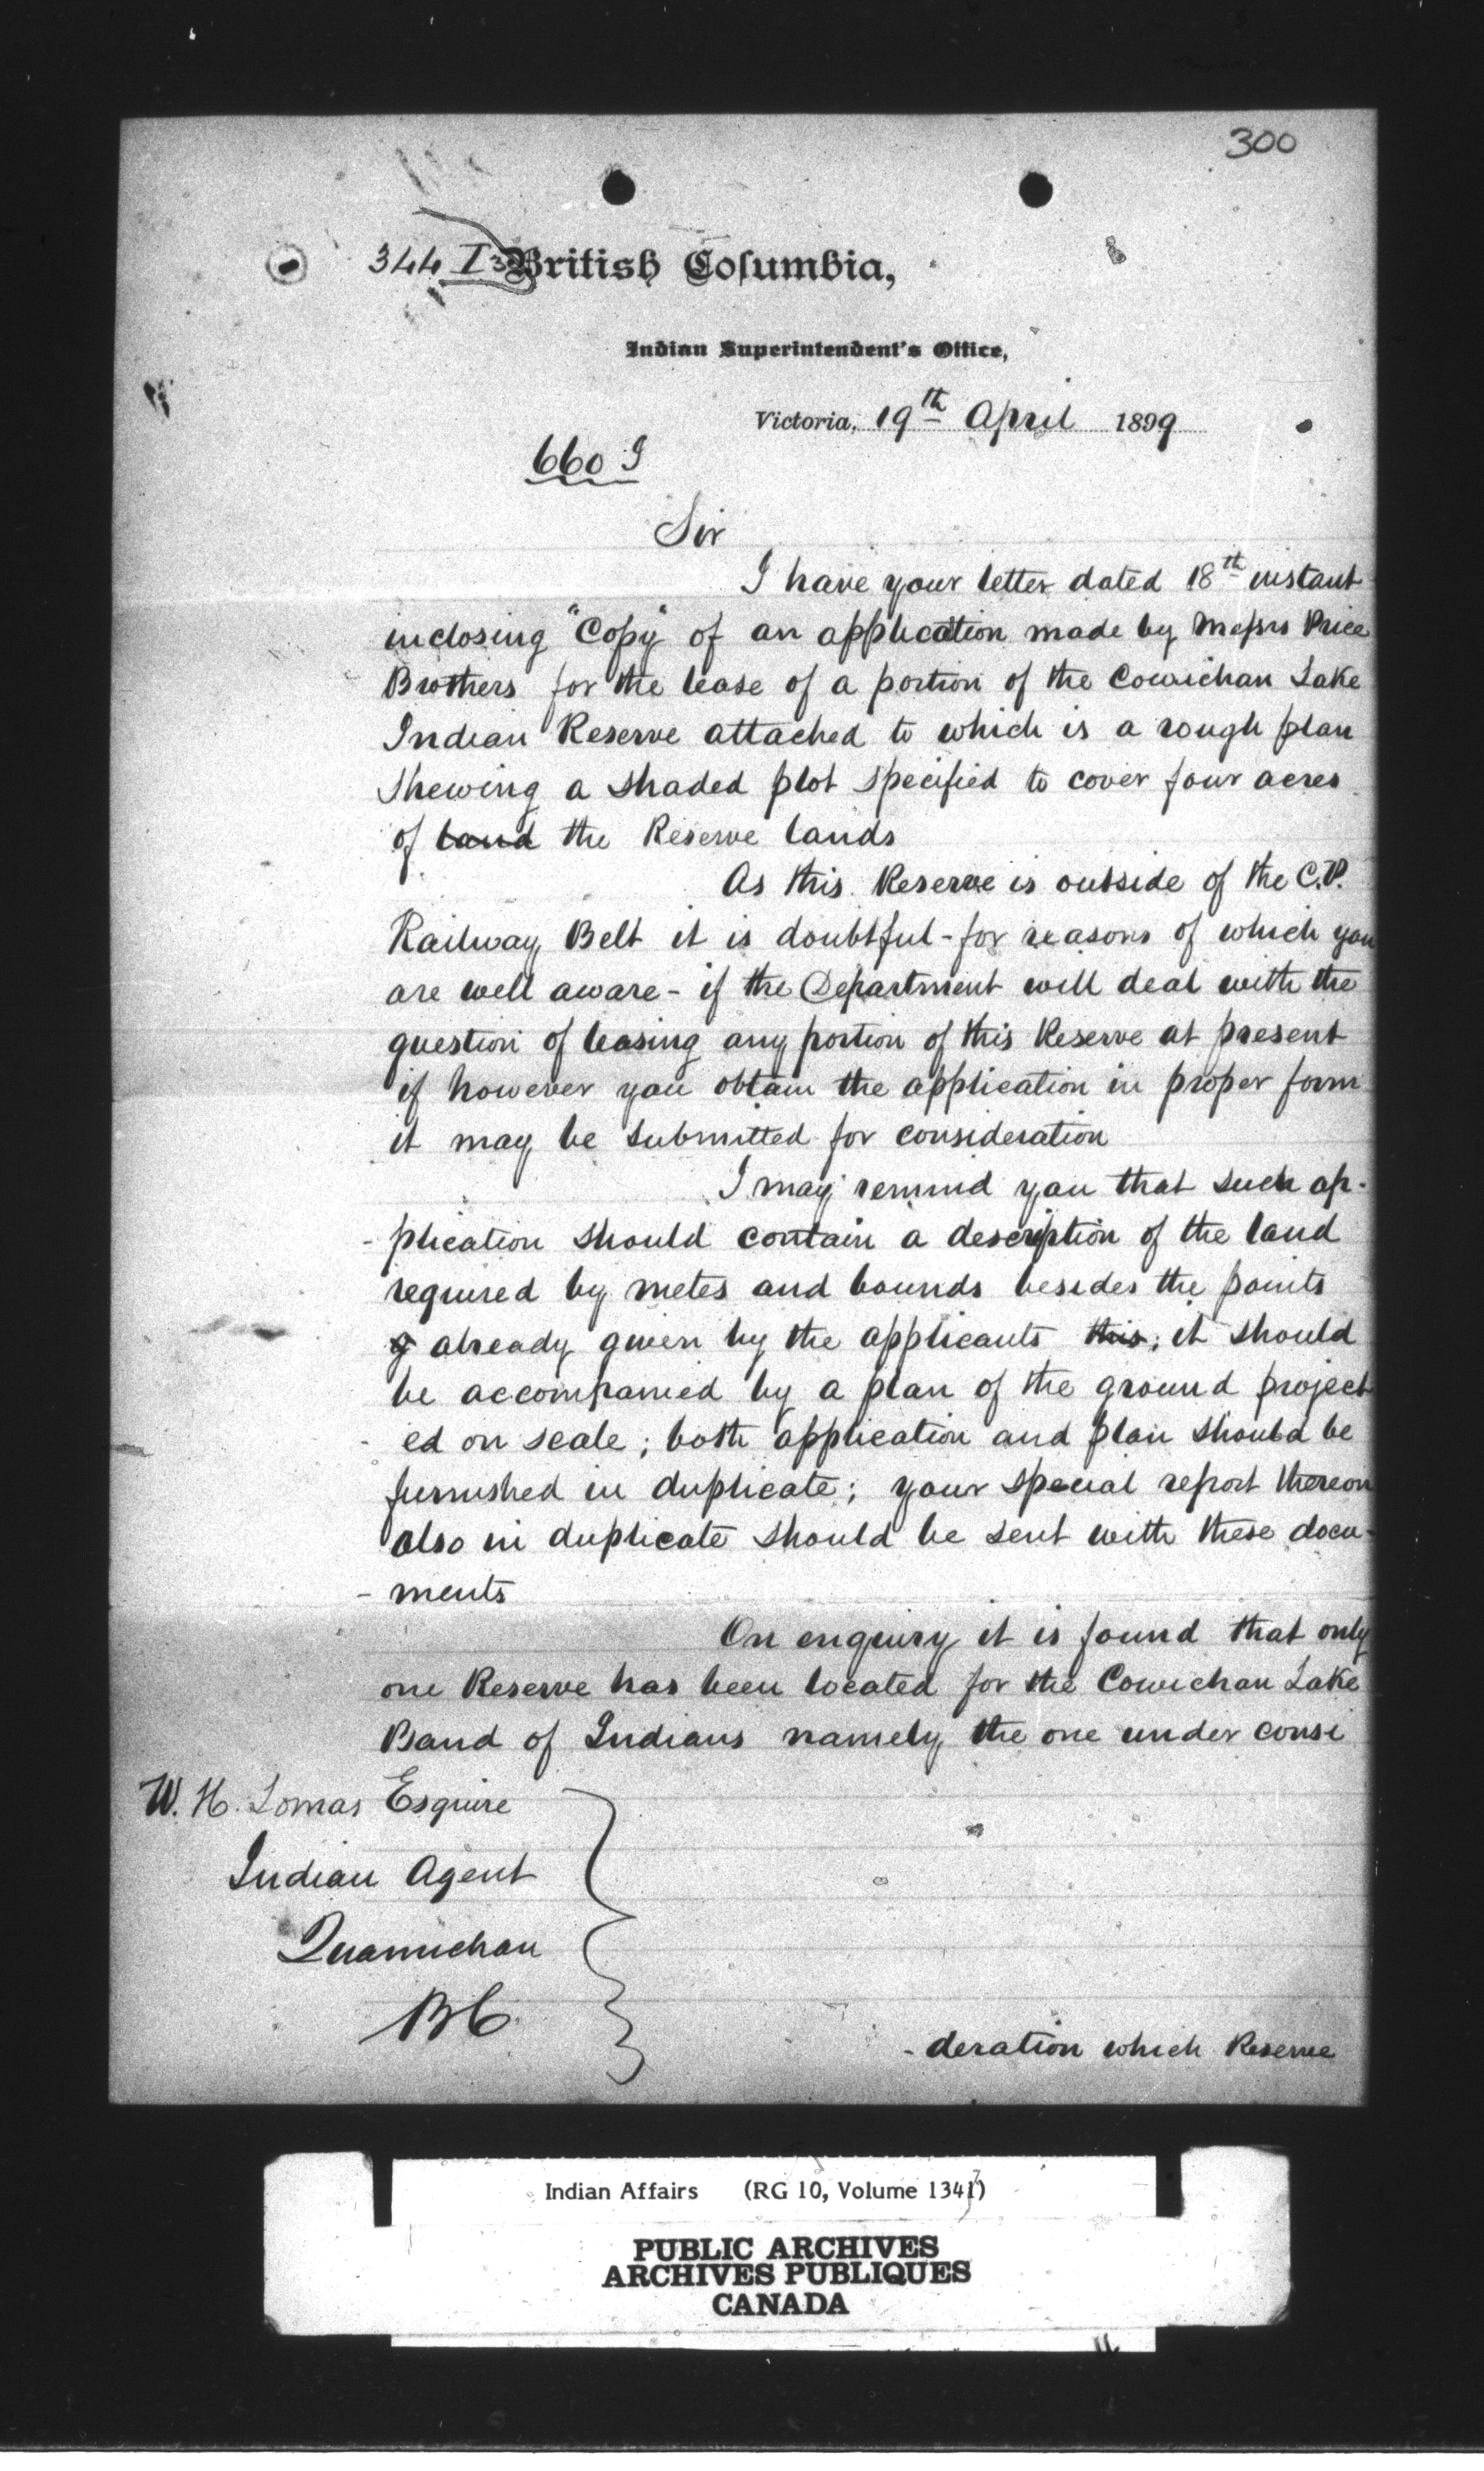 300
344 I 3
British Columbia,
Indian Superintendent's Office,
Victoria, 19th April 1899
660 I
Sir
I have your letter dated 18th instant
inclosing "Copy" of an application made by Messrs Price
Brothers for the lease of a portion of the Cowichan Lake
Indian Reserve attached to which is a rough plan
shewing a shaded plot specified to cover four acres
of land the Reserve lands
As this Reserve is outside of the C.P.
Railway Belt it is doubtful - for reasons of which you
are well aware - if the Department will deal with the
question of leasing any portion of this Reserve at present
if however you obtain the application in proper form
it may be submitted for consideration
I may remind you that such ap-
-plication should contain a description of the land
required by metes and bounds besides the points
g already given by the applicants this; it should
be accompanied by a plan of the ground project
-ed on scale; both application and plan should be
furnished in duplicate; your special report thereon
also in duplicate should be sent with these docu-
-ments
On enquiry it is found that only
one Reserve has been located for the Cowichan Lake
Band of Indians namely the one under consi
W. H. Lomas Esquire
Indian Agent
Quamichan
BC
-deration which Reserve
Indian Affairs (RG 10, Volume 1341)
PUBLIC ARCHIVES
ARCHIVES PUBLIQUES
CANADA